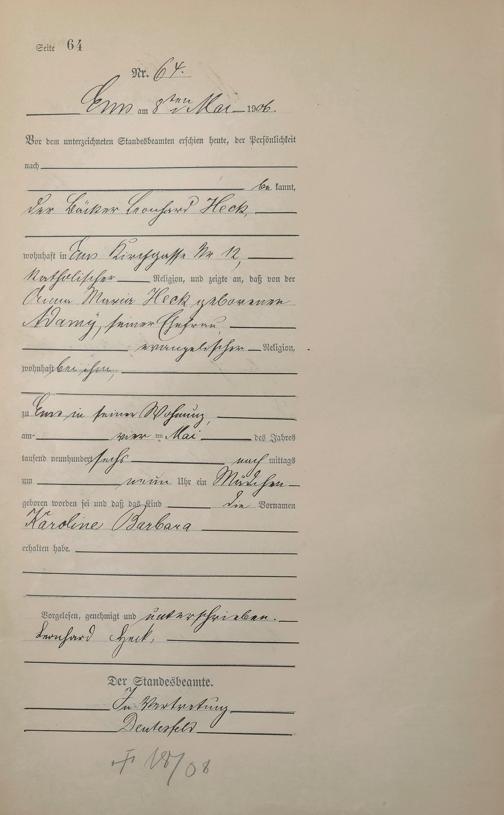 Seite 64
Nr. 64.
Ems am 8ten Mai 1906.
Vor dem unterzeichneten Standesbeamten erschien heute, der Persönlichkeit
nach
be kannt,
der Bäcker Leonhard Heck,
wohnhaft in Ems Kirchgasse Nr 12,
katholischer Religion, und zeigte an, daß von der
Anna Maria Heck geborenen
Adamy, seiner Ehefrau,
evangelischer Religion,
wohnhaft bei ihm,
zu Ems in seiner Wohnung,
am vier ten Mai des Jahres
tausend neunhundert sechs nach mittags
um neun Uhr ein Mädchen
geboren worden sei und daß das Kind die Vornamen
Karoline Barbara
erhalten habe.
Vorgelesen, genehmigt und unterschrieben.
Leonhard Heck,
Der Standesbeamte.
In Vertretung